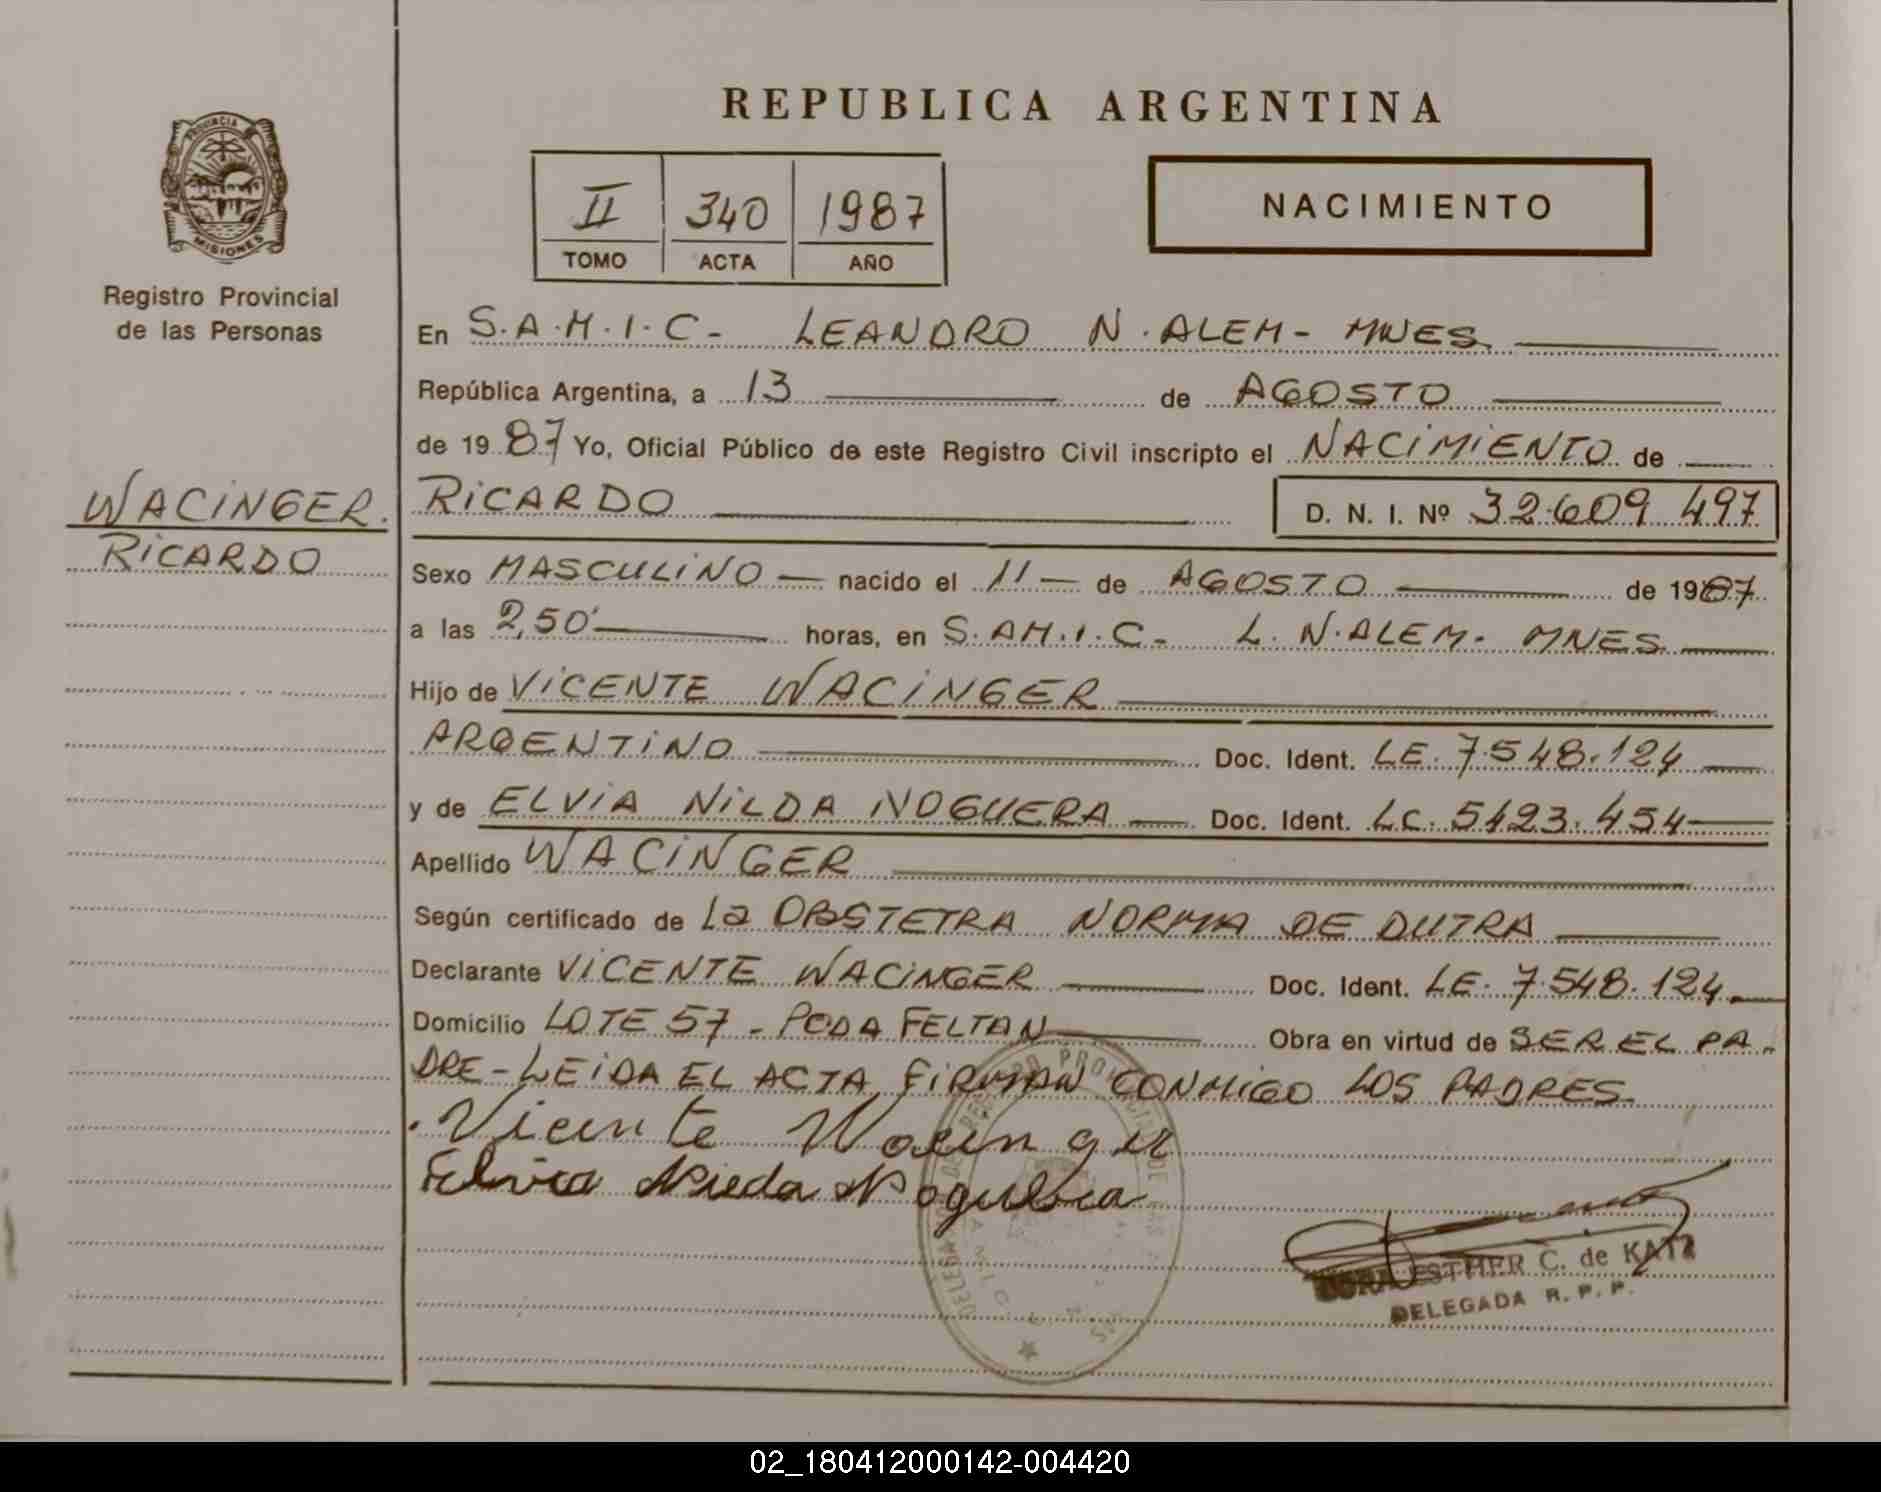 REPUBLICA ARGENTINA
PROVINCIA
MISIONES
Registro Provincial
de las Personas
II 340 1987
TOMO ACTA AÑO
NACIMIENTO
WACINGER.
RICARDO
En S.A.M.I.C- LEANDRO N. ALEM- MNES
República Argentina, a 13 de AGOSTO
de 1987 Yo, Oficial Público de este Registro Civil inscripto el NACIMIENTO de
RICARDO D. N. I. Nº 32.609 497
Sexo MASCULINO nacido el 11 de AGOSTO de 1987
a las 2,50 horas, en S.AM.I.C- L. N. ALEM- MNES
Hijo de VICENTE WACINGER
ARGENTINO Doc. Ident. LE. 7.548.124
y de ELVIA NILDA NOGUERA Doc. Ident. LC. 5423.454
Apellido WACINGER
Según certificado de La OBSTETRA NORMA DE DUTRA
Declarante VICENTE WACINGER Doc. Ident. LE. 7.548.124
Domicilio LOTE 57 - PCDA FELTAN Obra en virtud de SER EL PA-
DRE- LEIDA EL ACTA FIRMAN CONMIGO LOS PADRES
Vicente Wacinger
Elvia Nilda Noguera
ESTHER C. de KATZ
DELEGADA R. P. P.
02_180412000142-004420